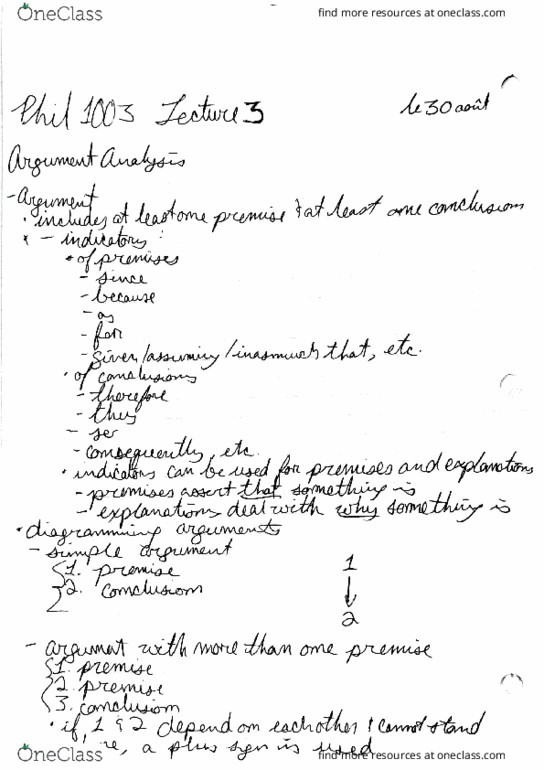 OneClass
find more resources at oneclass.com
Phil 1003 Lecture 3
le 30 août
Argument Analysis
- Argument
• includes at least one premise & at least one conclusion
* - indicators:
• of premises
- since
- because
- as
- for
- given/assuming/inasmuch that, etc.
• of conclusions
- therefore
- thus
- so
- consequently, etc.
• indicators can be used for premises and explanations
- premises assert that something is
- explanations deal with why something is
• diagramming arguments
- simple argument
1. premise
2. conclusion
1
↓
2
- argument with more than one premise
1. premise
2. premise
3. conclusion
• if 1 & 2 depend on eachother & cannot stand
a plus sign is used
OneClass
find more resources at oneclass.com